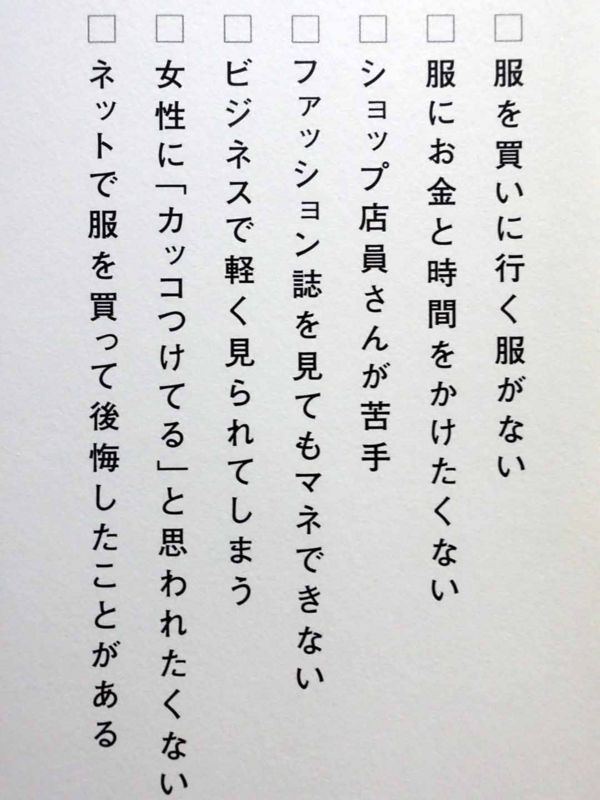 □服を買いに行く服がない
□服にお金と時間をかけたくない
□ショップ店員さんが苦手
□ファッション誌を見てもマネできない
□ビジネスで軽く見られてしまう
□女性に「カッコつけてる」と思われたくない
□ネットで服を買って後悔したことがある